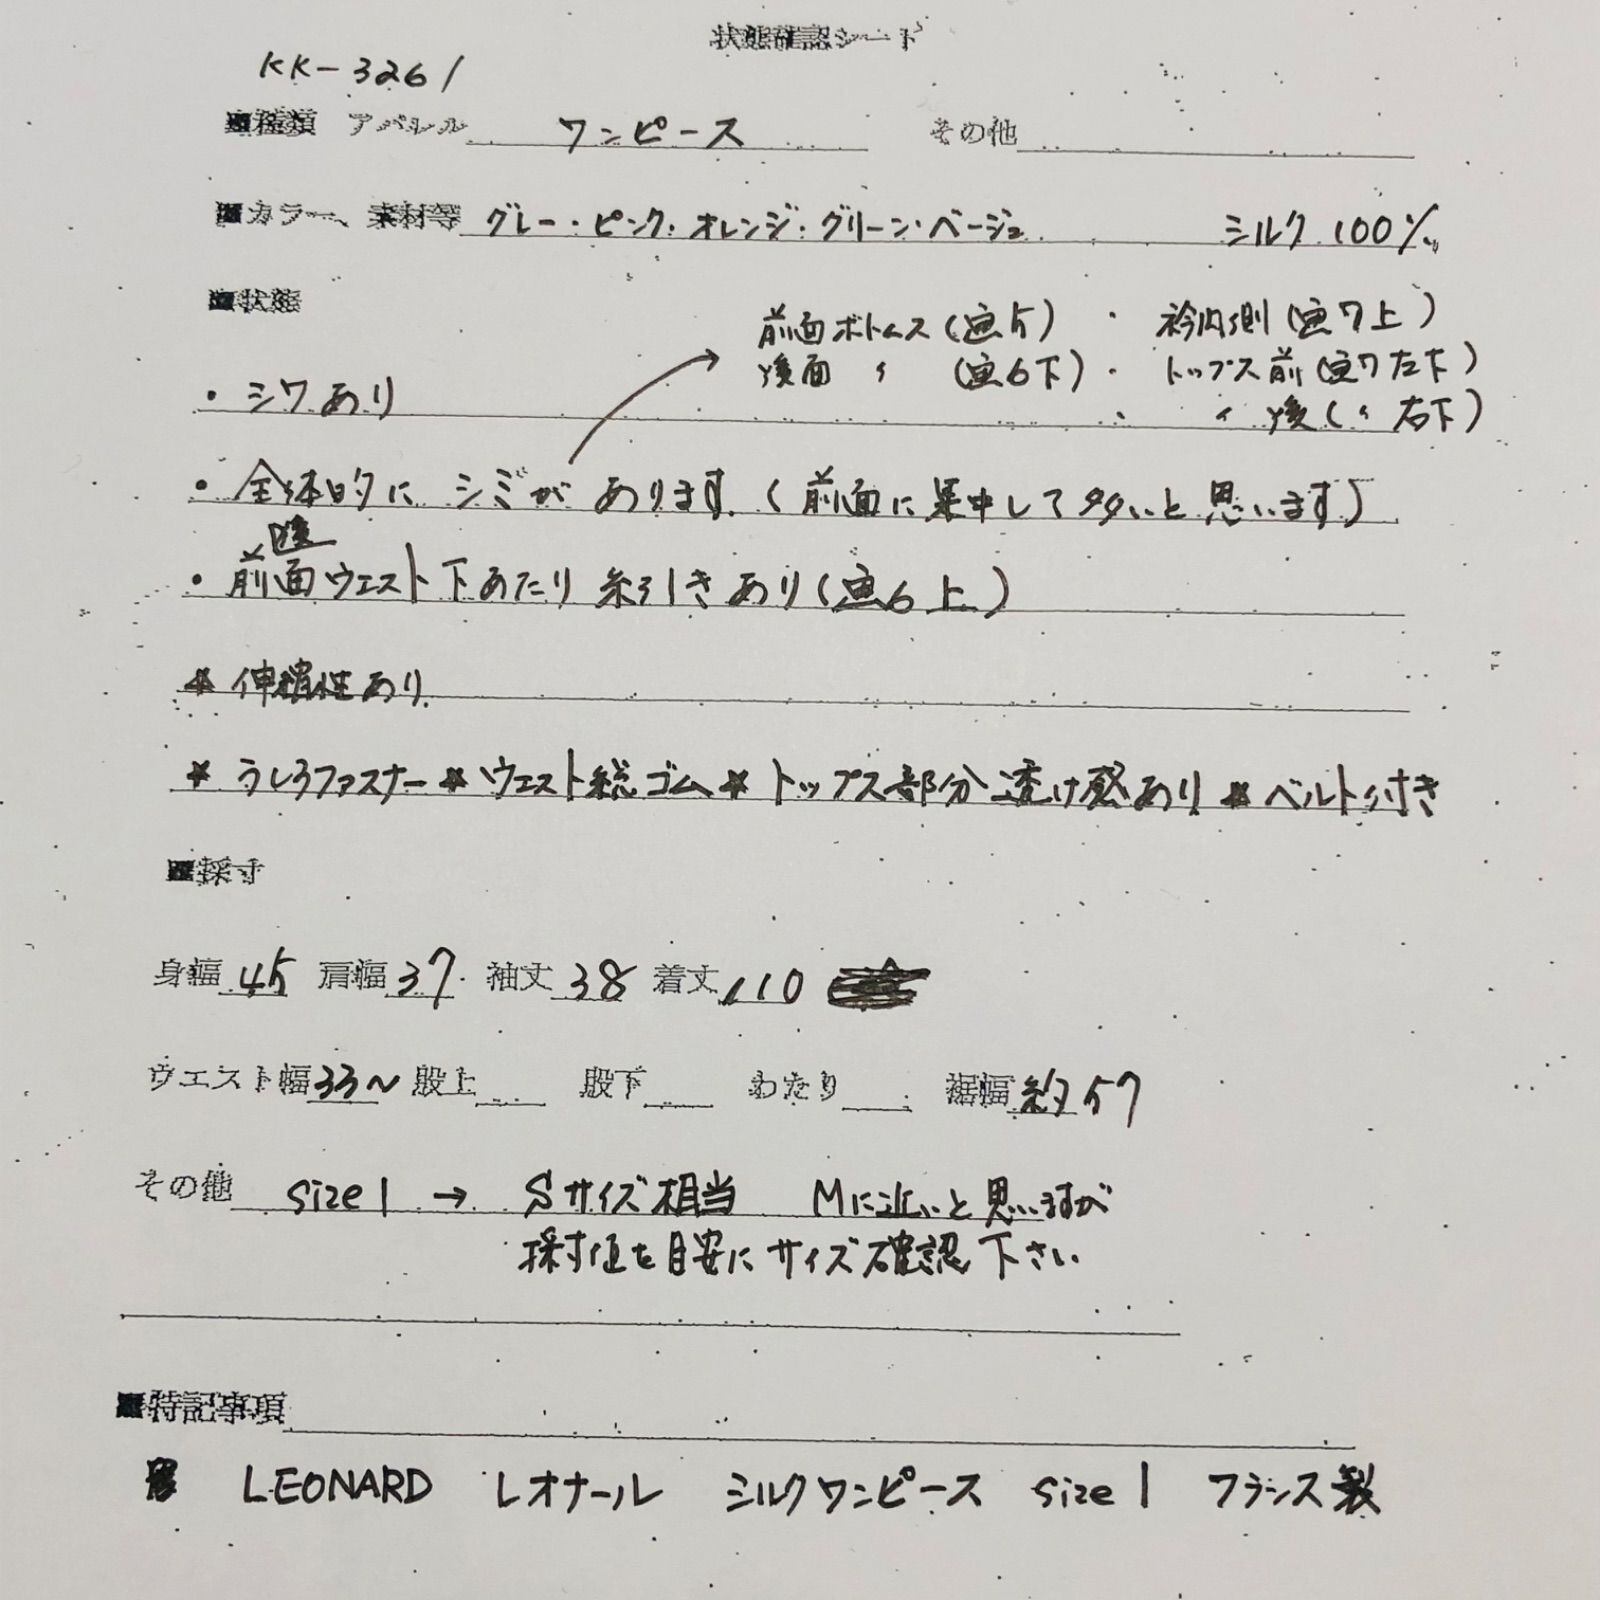 状態確認シート
KK-3261
■種類 アパレル ワンピース その他
■カラー、素材等 グレー・ピンク・オレンジ・グリーン・ベージュ シルク 100%
■状態
前面ボトムス(画5) ・ 衿内側(画7上)
後面 〃 (画6下)・ トップス前(画7左下)
・シワあり
〃 後(〃 右下)
・全体的に シミが あります (前面に集中して多いと思います)
後
・前面ウエスト下あたり 糸引きあり(画6上)
★ 伸縮性あり
★ うしろファスナー ★ ウエスト総ゴム ★ トップス部分透け感あり ★ ベルト付き
■採寸
身幅 45 肩幅 37 袖丈 38 着丈 110
ウエスト幅 33〜 股上 股下 わたり 裾幅 約57
その他 size 1 → Sサイズ相当 Mに近いと思いますが
採寸値を目安にサイズ確認下さい
■特記事項
LEONARD レオナール シルクワンピース size 1 フランス製